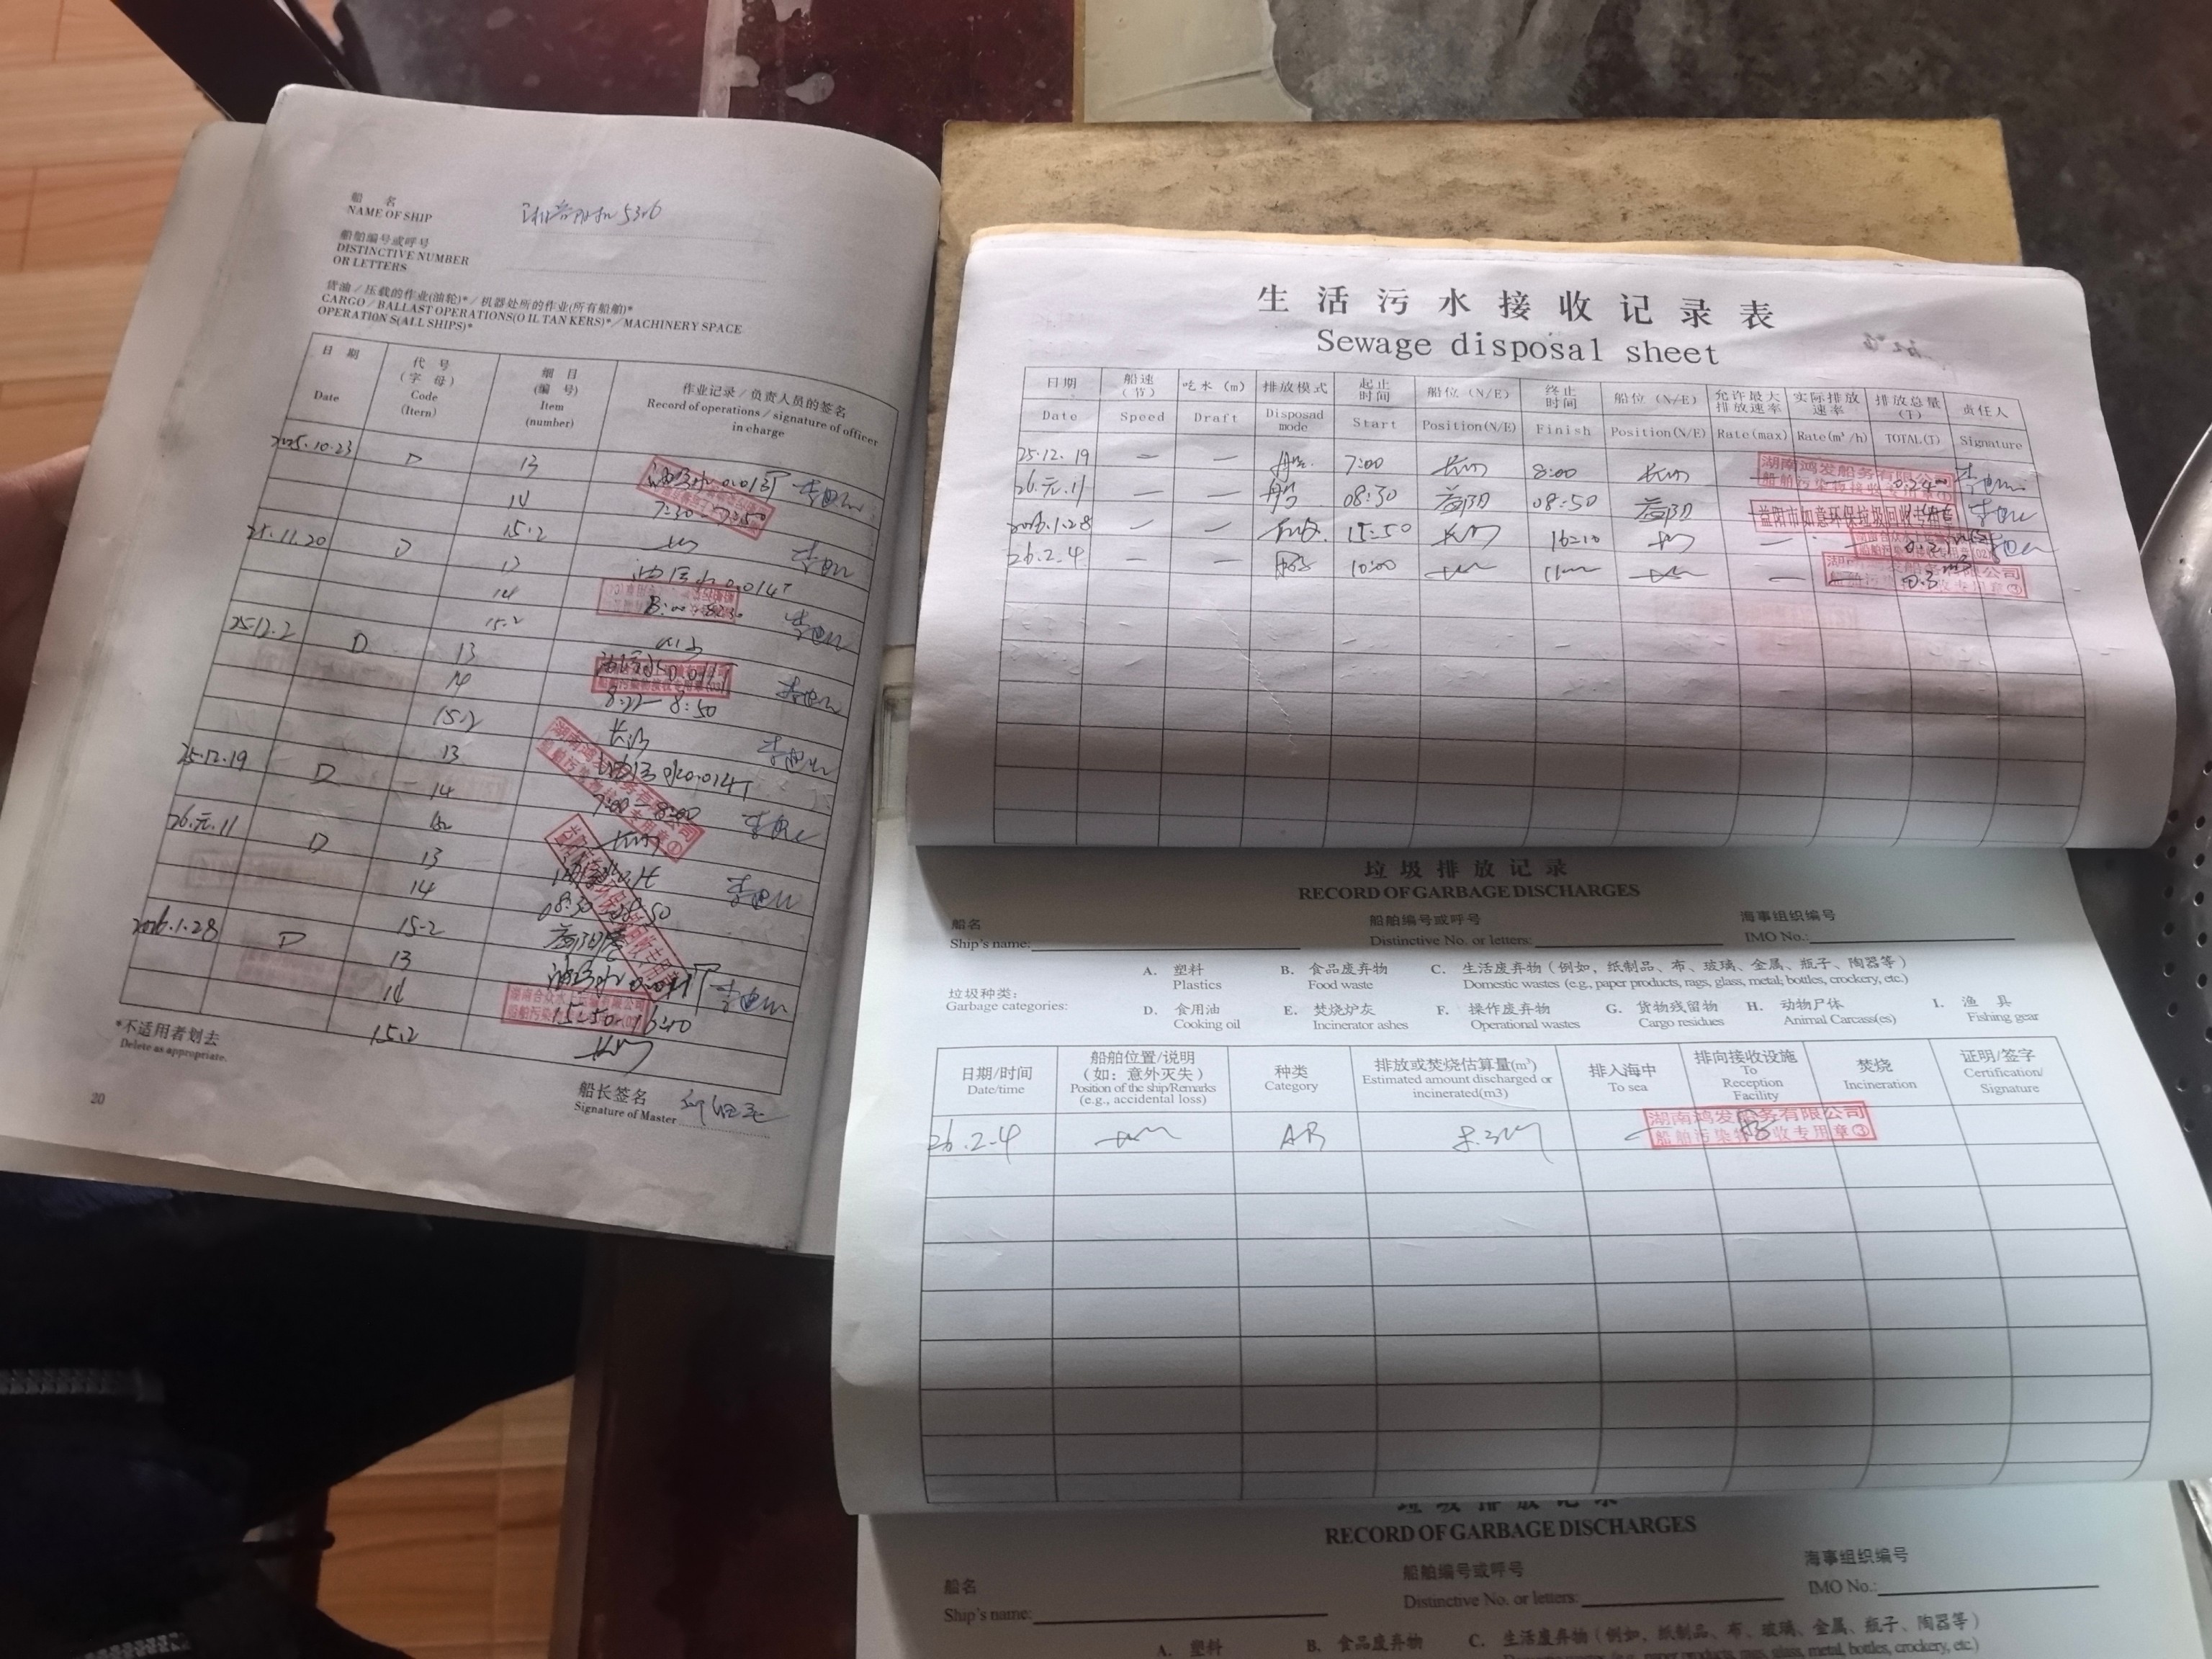 船 名
NAME OF SHIP
5306
船舶编号或呼号
DISTINCTIVE NUMBER
OR LETTERS
货油/压载的作业(油轮)*/机器处所的作业(所有船舶)*
CARGO/BALLAST OPERATIONS(O IL TAN KERS)*/MACHINERY SPACE
OPERATION S(ALL SHIPS)*
日 期 Date
代 号 (字 母) Code (Item)
细 目 (编 号) Item (number)
作业记录/负责人员的签名 Record of operations/signature of officer in charge
2025.10.23 D 13 油污水0.013T
14 7:30-7:50
15.2
25.11.20 D 13 油污水0.014T
14 8:00-8:30
15.2
25.12.2 D 13 油污水0.011T
14 8:22-8:50
15.2 长沙
25.12.19 D 13 油污水0.014T
14 7:00-8:00
15.2
26.元.11 D 13
14 08:30-08:50
15.2 益阳港
2026.1.28 D 13 油污水
14 15:50-16:10
15.2
湖南合众水上运输有限公司
*不适用者划去
Delete as appropriate.
船长签名
Signature of Master
20
生活污水接收记录表
Sewage disposal sheet
日期 船速(节) 吃水(m) 排放模式 起止时间 船位(N/E) 终止时间 船位(N/E) 允许最大排放速率 实际排放速率 排放总量(T) 责任人
Date Speed Draft Disposad mode Start Position(N/E) Finish Position(N/E) Rate(max) Rate(m³/h) TOTAL(T) Signature
25.12.19 — — 7:00 8:00
湖南鸿发船务有限公司
26.元.11 — — 船 08:30 益阳 08:50 益阳
益阳市如意环保垃圾回收
2026.1.28 — — 15:50 16:10 —
26.2.4 — — 10:00 — 0.3
垃圾排放记录
RECORD OF GARBAGE DISCHARGES
船名
Ship's name:
船舶编号或呼号
Distinctive No. or letters:
海事组织编号
IMO No.:
垃圾种类:
Garbage categories:
A. 塑料 Plastics
B. 食品废弃物 Food waste
C. 生活废弃物(例如,纸制品、布、玻璃、金属、瓶子、陶器等) Domestic wastes (e.g., paper products, rags, glass, metal, bottles, crockery, etc.)
D. 食用油 Cooking oil
E. 焚烧炉灰 Incinerator ashes
F. 操作废弃物 Operational wastes
G. 货物残留物 Cargo residues
H. 动物尸体 Animal Carcass(es)
I. 渔 具 Fishing gear
日期/时间 Date/time
船舶位置/说明(如:意外灭失) Position of the ship/Remarks (e.g., accidental loss)
种类 Category
排放或焚烧估算量(m³) Estimated amount discharged or incinerated(m3)
排入海中 To sea
排向接收设施 To Reception Facility
焚烧 Incineration
证明/签字 Certification/ Signature
26.2.4 AB
湖南鸿发船务有限公司
船舶污染物接收专用章③
垃圾排放记录
RECORD OF GARBAGE DISCHARGES
船名
Ship's name:
船舶编号或呼号
Distinctive No. or letters:
海事组织编号
IMO No.:
A. 塑料
B. 食品废弃物
C. 生活废弃物(例如,纸制品、布、玻璃、金属、瓶子、陶器等)